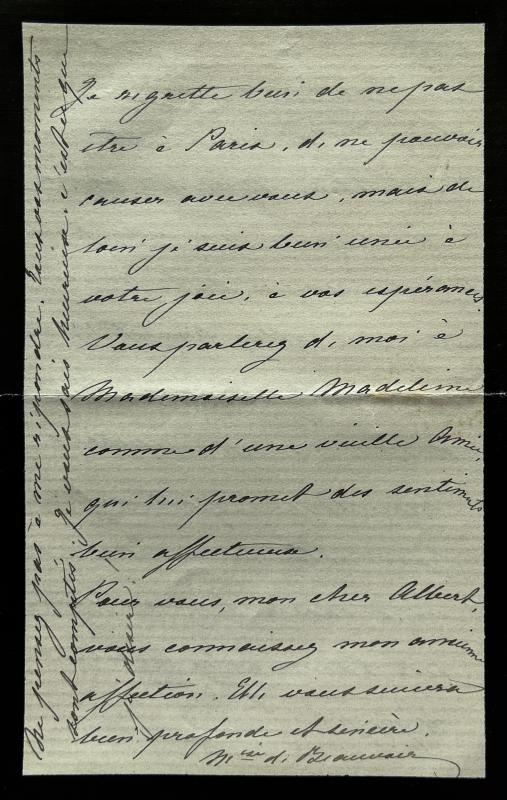 Je regrette bien de ne pas
être à Paris, de ne pouvoir
causer avec vous, mais de
loin je suis bien unie à
votre joie, à vos espérances.
Vous parlerez de moi à
Mademoiselle Madeleine
comme d'une vieille amie,
qui lui promet des sentiments
bien affectueux.
Pour vous, mon cher Albert,
vous connaissez mon ancienne
affection. Elle vous suivra
bien profonde et sincère.
Mise de Beauvoir
Ne pensez pas à me répondre. Tous vos moments
sont comptés, je vous sais heureux, c'est ce que
je désire